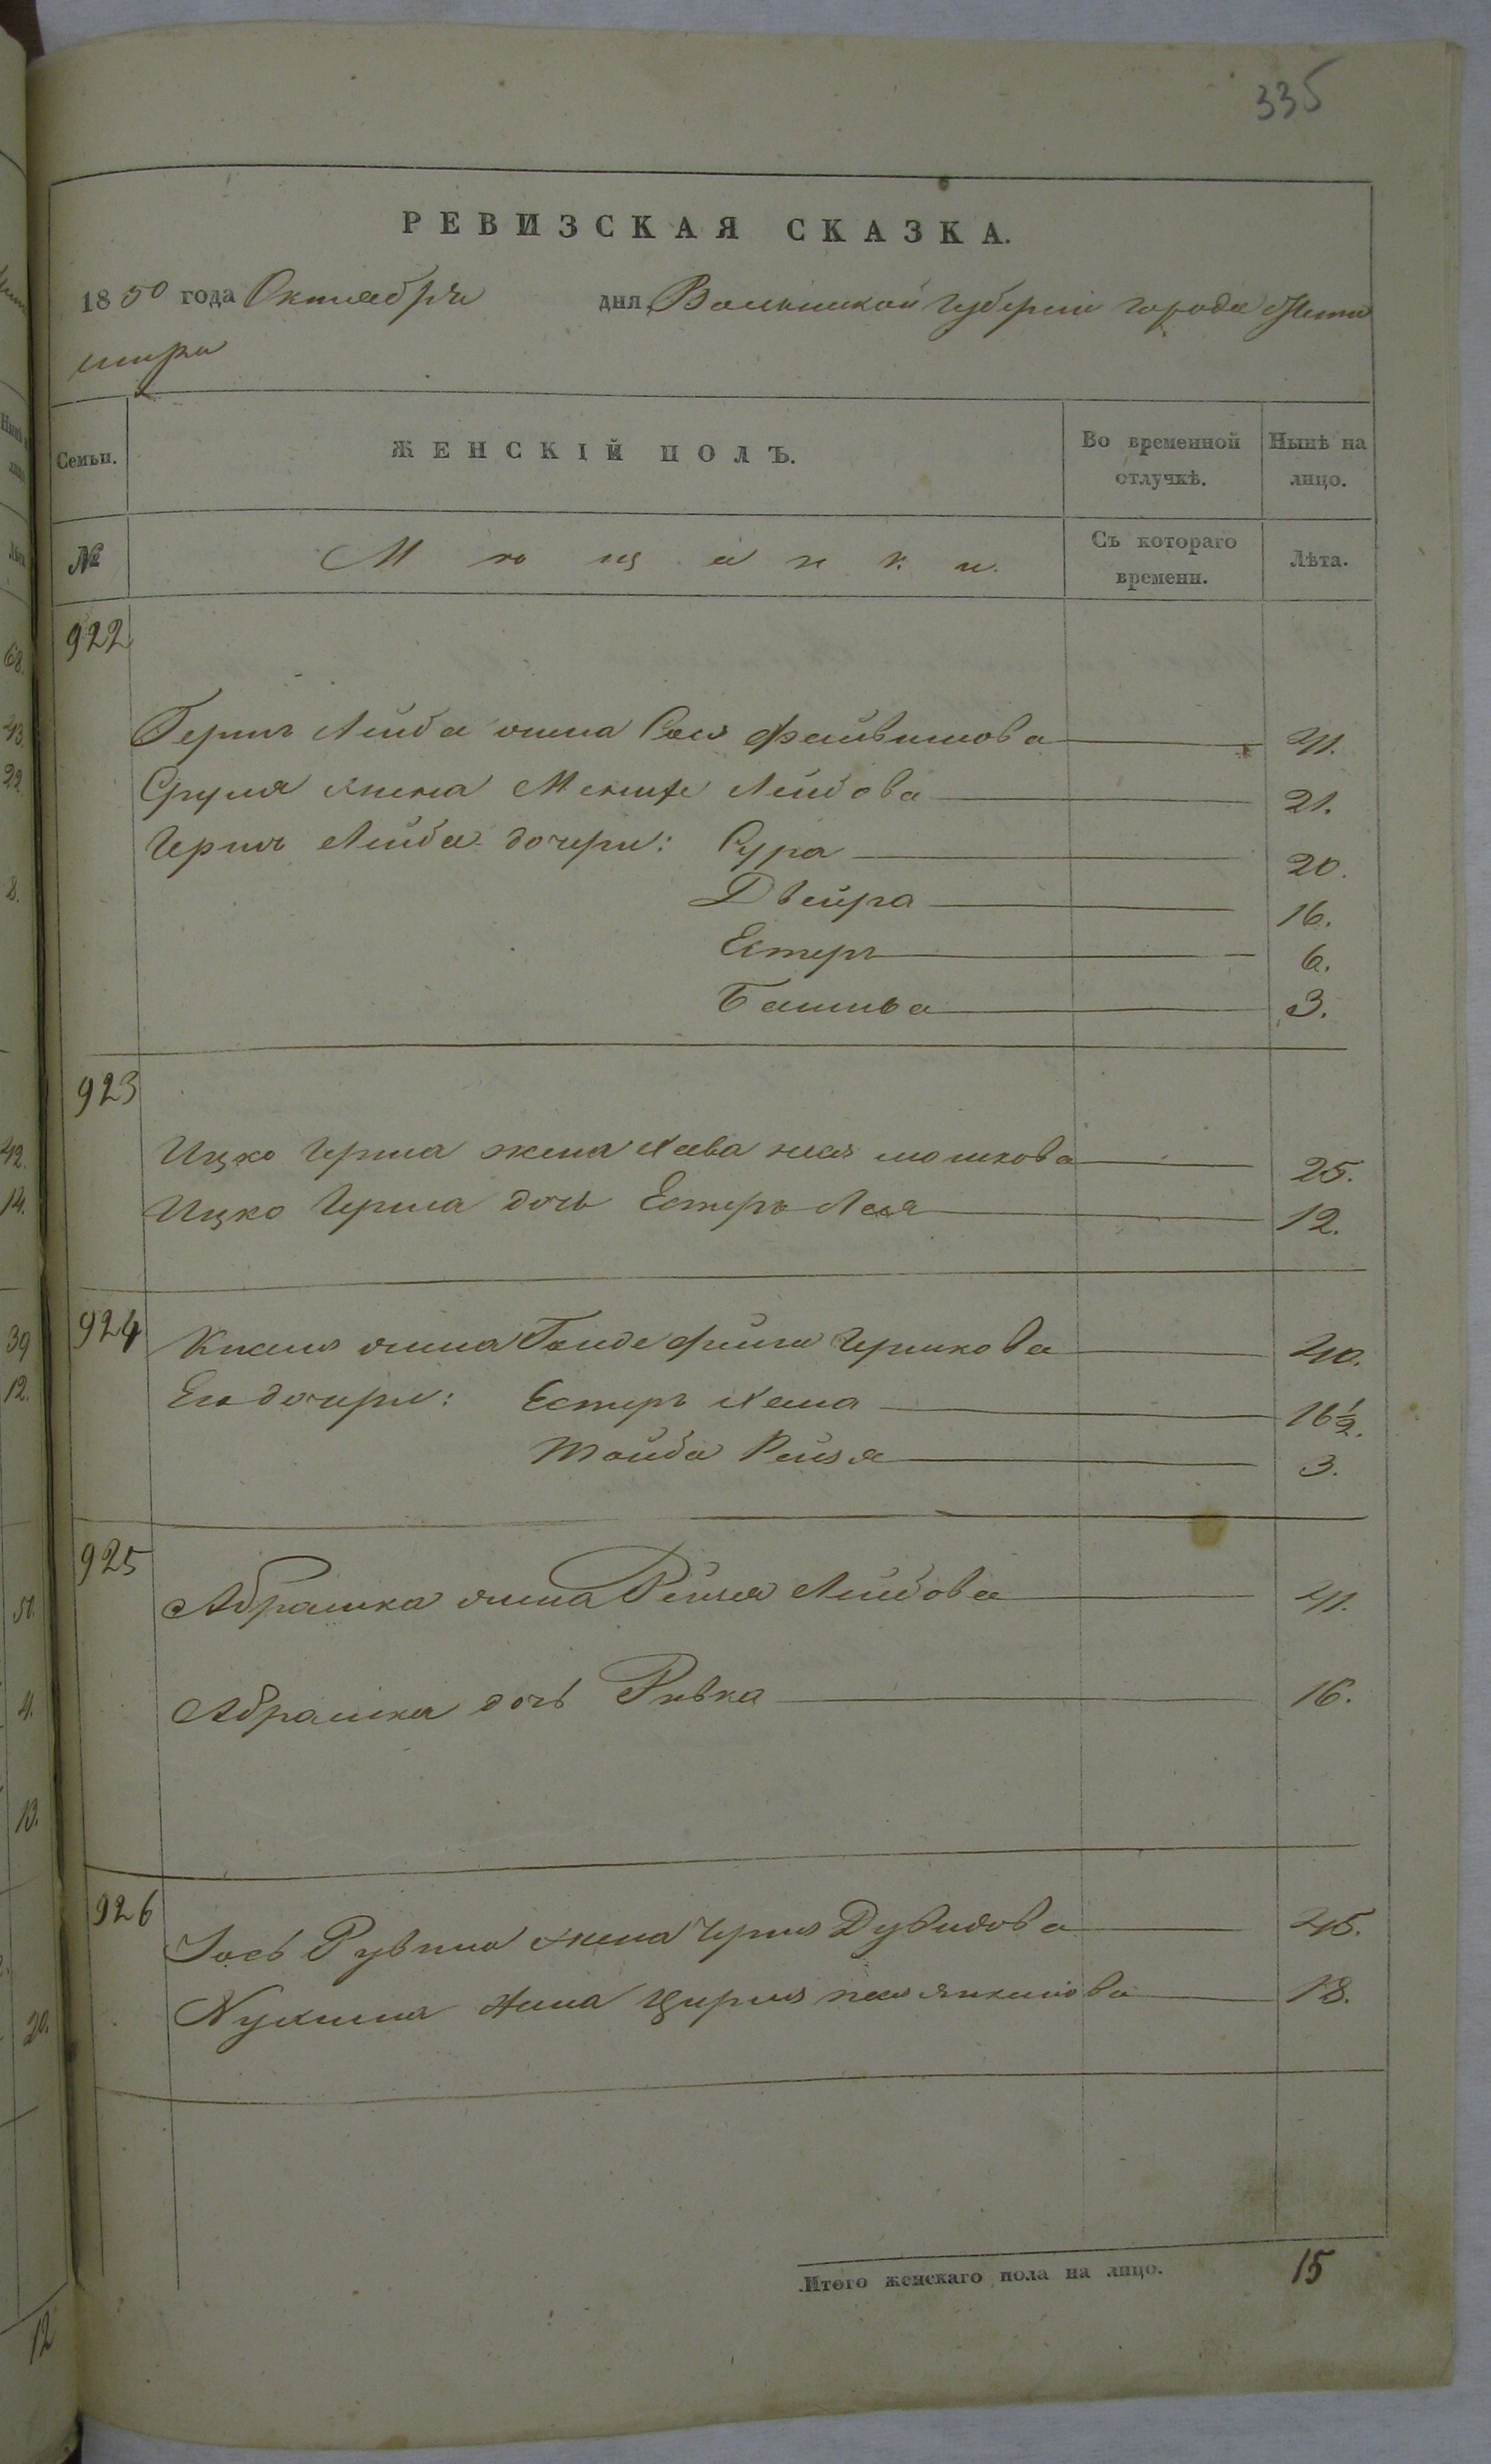 335
РЕВИЗСКАЯ СКАЗКА.
1850 года Октября дня Волынской губернии города Жито
мира
Семьи. ЖЕНСКІЙ ПОЛЪ. Во временной отлучкѣ. Нынѣ на лицо.
№ Мѣщанки. Съ котораго времени. Лѣта.
922
Герш Лейба жена Сося Файвишова 41.
Сруля жена Лейбова 21.
Герш Лейба дочери: Сура 20.
Двейра 16.
Естеръ 6.
Башива 3.
923
Ицко Герша жена Хава Мошкова 25.
Ицко Герша дочь Естеръ Лея 12.
924
жена Фейга Гершкова 40.
Его дочери: Естеръ Хана 16½.
Тойба Рейзя 3.
925
Абрамка жена Лейбова 41.
Абрамка дочь Ривка 16.
926
Іось Рувина жена Дувидова 45.
Нухима жена Янкелиова 18.
Итого женскаго пола на лицо. 15
68.
43.
22.
8.
42.
14.
39
12.
51.
4.
13.
20.
12